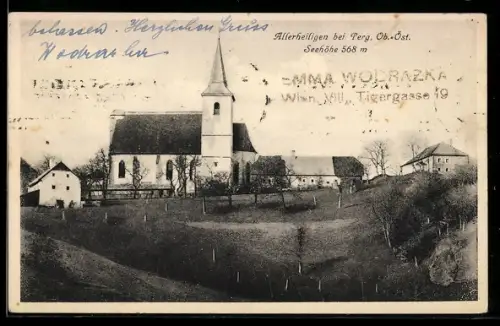 belassen. Herzlichen Gruss
Wodrazka
Allerheiligen bei Perg, Ob.-Öst.
Seehöhe 568 m
EMMA WODRAZKA
Wien, VIII., Tigergasse 19